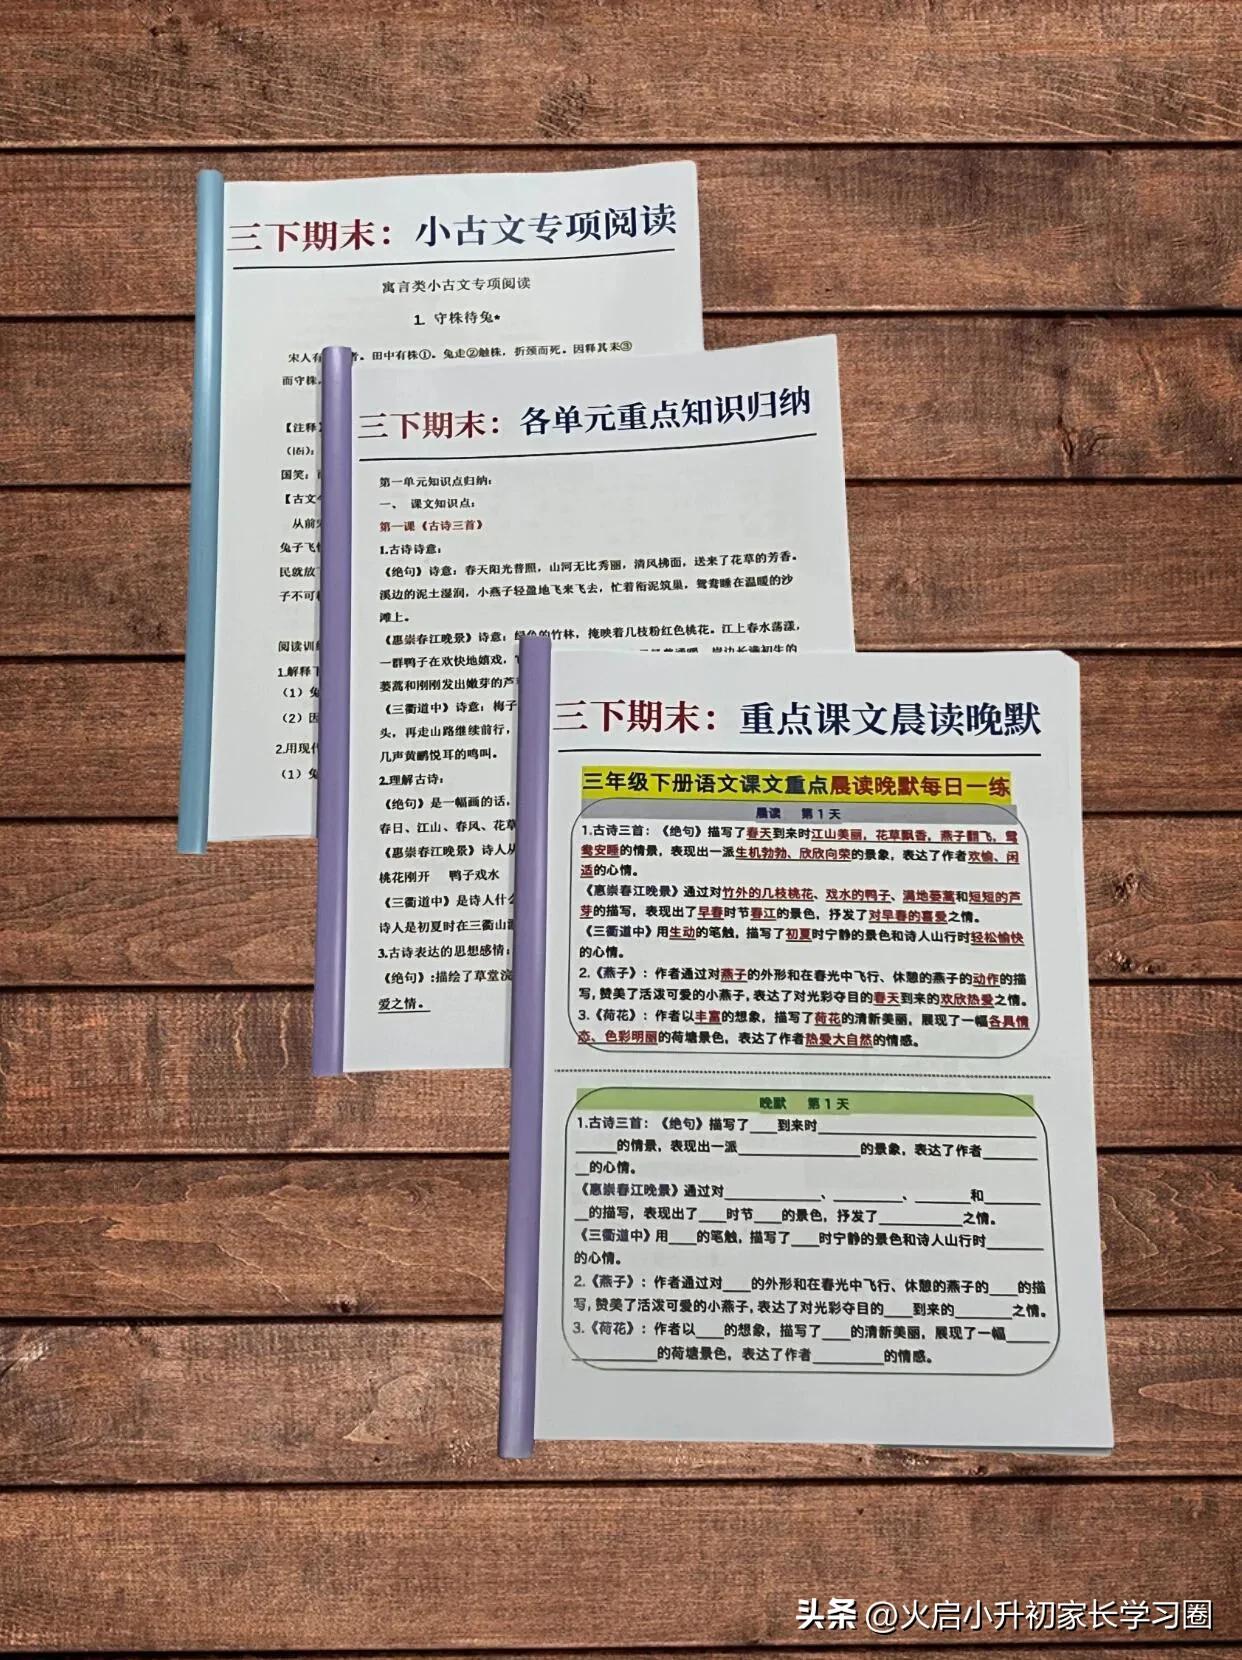 三下期末：小古文专项阅读
寓言类小古文专项阅读
1. 守株待兔*
宋人有 者。田中有株①。兔走②触株，折颈而死。因释其耒③
而守株，
【注释】
国笑：
【古文
从前
兔子飞
民就放
子不可
阅读训
1.解释
（1）兔
（2）因
2.用现代
（1）兔
三下期末：各单元重点知识归纳
第一单元知识点归纳：
一、 课文知识点：
第一课《古诗三首》
1.古诗诗意：
《绝句》诗意：春天阳光普照，山河无比秀丽，清风拂面，送来了花草的芳香。
溪边的泥土湿润，小燕子轻盈地飞来飞去，忙着衔泥筑巢，鸳鸯睡在温暖的沙
滩上。
《惠崇春江晚景》诗意：绿色的竹林，掩映着几枝粉红色桃花。江上春水荡漾，
一群鸭子在欢快地嬉戏， 岸边长满初生的
蒌蒿和刚刚发出嫩芽的芦
《三衢道中》诗意：梅子
头，再走山路继续前行，
几声黄鹂悦耳的鸣叫。
2.理解古诗：
《绝句》是一幅画的话，
春日、江山、春风、花草
《惠崇春江晚景》诗人从
桃花刚开 鸭子戏水
《三衢道中》是诗人什么
诗人是初夏时在三衢山
3.古诗表达的思想感情：
《绝句》:描绘了草堂浣
爱之情。
三下期末：重点课文晨读晚默
三年级下册语文课文重点晨读晚默每日一练
晨读 第1天
1.古诗三首：《绝句》描写了春天到来时江山美丽，花草飘香，燕子翻飞，鸳
鸯安睡的情景，表现出一派生机勃勃、欣欣向荣的景象，表达了作者欢愉、闲
适的心情。
《惠崇春江晚景》通过对竹外的几枝桃花、戏水的鸭子、满地蒌蒿和短短的芦
芽的描写，表现出了早春时节春江的景色，抒发了对早春的喜爱之情。
《三衢道中》用生动的笔触，描写了初夏时宁静的景色和诗人山行时轻松愉快
的心情。
2.《燕子》：作者通过对燕子的外形和在春光中飞行、休憩的燕子的动作的描
写，赞美了活泼可爱的小燕子，表达了对光彩夺目的春天到来的欢欣热爱之情。
3.《荷花》：作者以丰富的想象，描写了荷花的清新美丽，展现了一幅各具情
态、色彩明丽的荷塘景色，表达了作者热爱大自然的情感。
晚默 第1天
1.古诗三首：《绝句》描写了____到来时____________________
______的情景，表现出一派__________________的景象，表达了作者________
__的心情。
《惠崇春江晚景》通过对______________、__________、________和________
__的描写，表现出了____时节____的景色，抒发了____________之情。
《三衢道中》用____的笔触，描写了____时宁静的景色和诗人山行时________
的心情。
2.《燕子》：作者通过对____的外形和在春光中飞行、休憩的燕子的____的描
写，赞美了活泼可爱的小燕子，表达了对光彩夺目的____到来的________之情。
3.《荷花》：作者以____的想象，描写了____的清新美丽，展现了一幅______
____________的荷塘景色，表达了作者__________的情感。
头条 @火启小升初家长学习圈